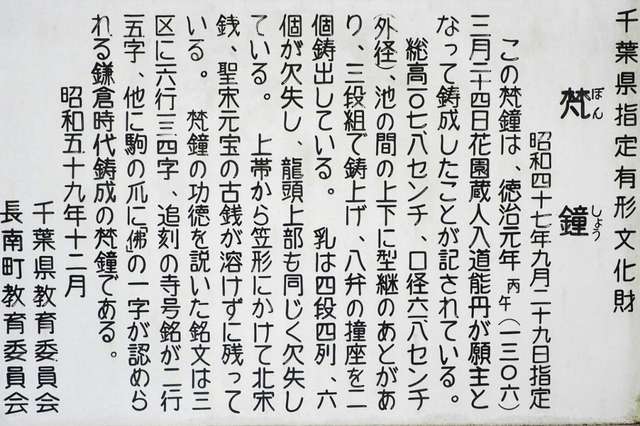 千葉県指定有形文化財
梵鐘
ぼんしょう
昭和四十七年九月二十九日指定
この梵鐘は、徳治元年丙午(一三〇六)
三月二十四日花園蔵人入道能丹が願主と
なって鋳成したことが記されている。
総高一〇七・八センチ、口径六一・八センチ
外径)、池の間の上下に型継のあとがあ
り、三段組で鋳上げ、八弁の撞座を二
個鋳出している。 乳は四段四列、六
個が欠失し、龍頭上部も同じく欠失し
ている。 上帯から笠形にかけて北宋
銭、聖宋元宝の古銭が溶けずに残って
いる。 梵鐘の功徳を説いた銘文は三
区に六行三四字、追刻の寺号銘が二行
五字、他に駒の爪に「佛」の一字が認めら
れる鎌倉時代鋳成の梵鐘である。
昭和五十九年十二月
千葉県教育委員会
長南町教育委員会